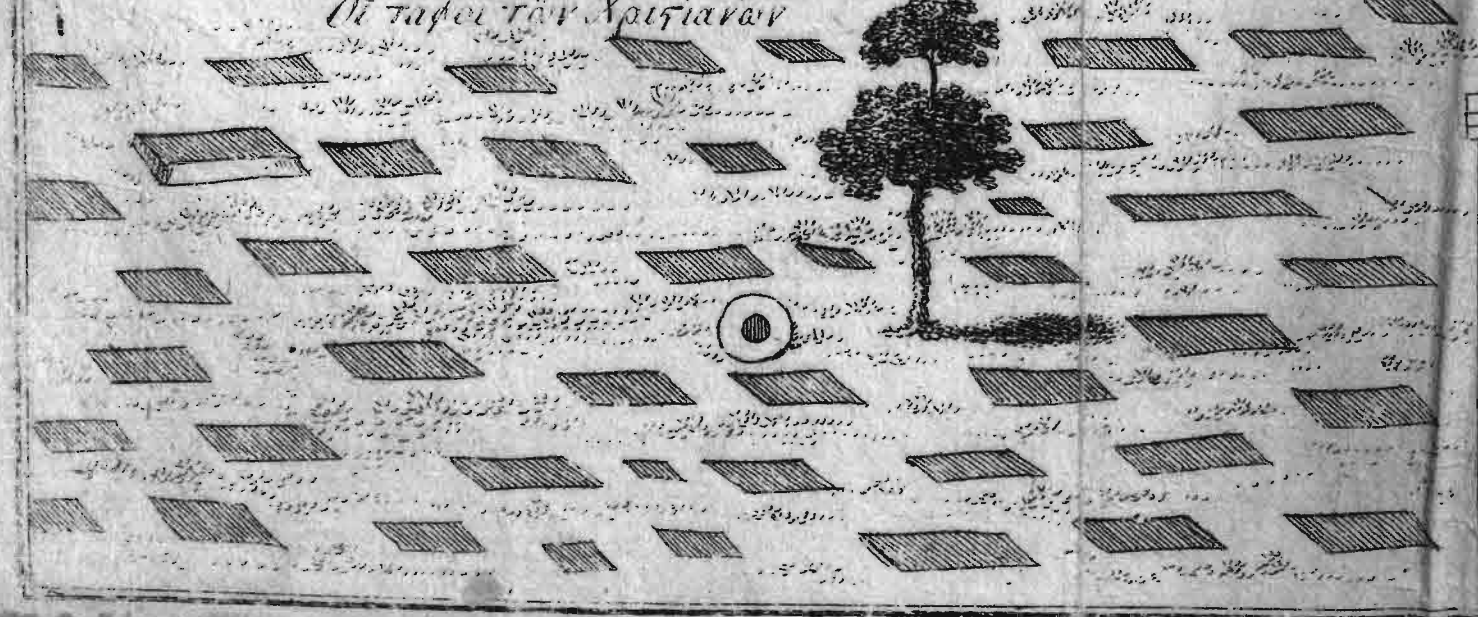 Οἱ ταφοι τῶν Χριϛιανων